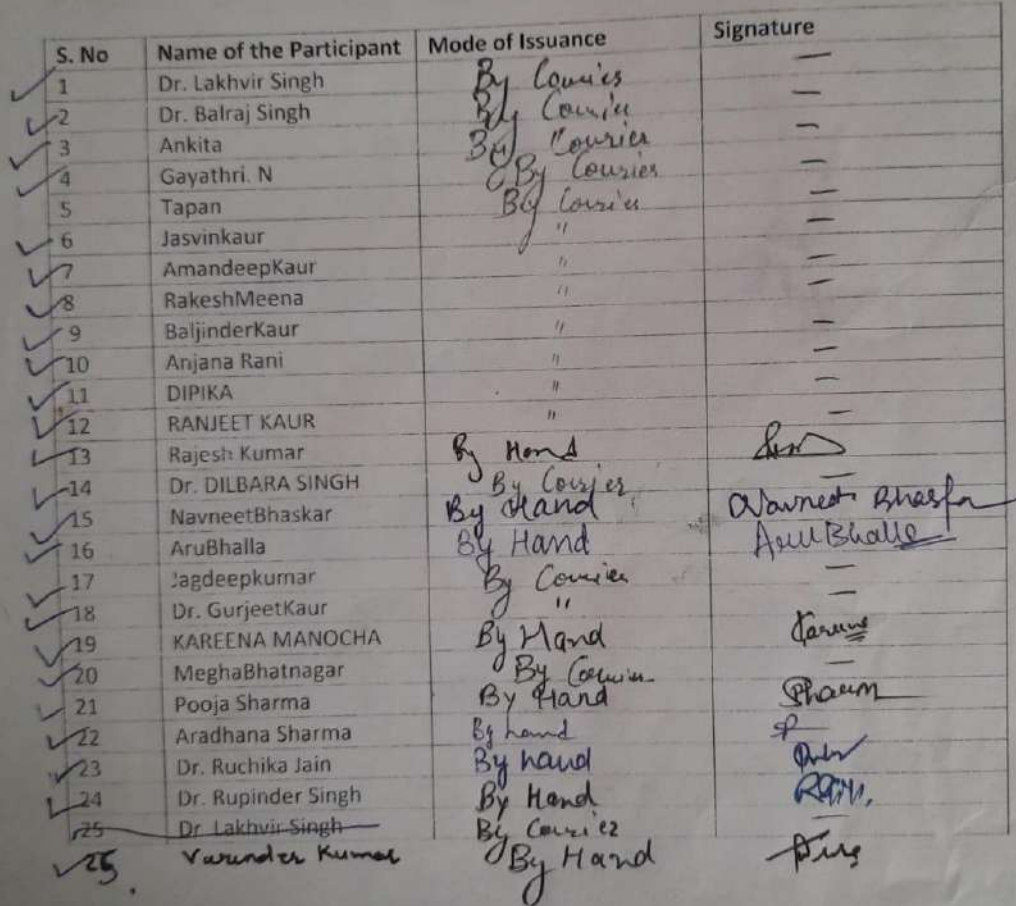 S. No Name of the Participant Mode of Issuance Signature
1 Dr. Lakhvir Singh By Courier —
2 Dr. Balraj Singh By Courier —
3 Ankita By Courier —
4 Gayathri. N By Courier —
5 Tapan By Courier —
6 Jasvinkaur " —
7 AmandeepKaur " —
8 RakeshMeena " —
9 BaljinderKaur " —
10 Anjana Rani " —
11 DIPIKA " —
12 RANJEET KAUR " —
13 Rajesh Kumar By Hand
14 Dr. DILBARA SINGH By Courier —
15 NavneetBhaskar By Hand Navneet Bhaskar
16 AruBhalla By Hand Aru Bhalla
17 Jagdeepkumar By Courier —
18 Dr. GurjeetKaur " —
19 KAREENA MANOCHA By Hand
20 MeghaBhatnagar By Courier —
21 Pooja Sharma By Hand
22 Aradhana Sharma By hand
23 Dr. Ruchika Jain By hand
24 Dr. Rupinder Singh By Hand
25 Dr Lakhvir Singh By Courier —
25. Varunder Kumar By Hand